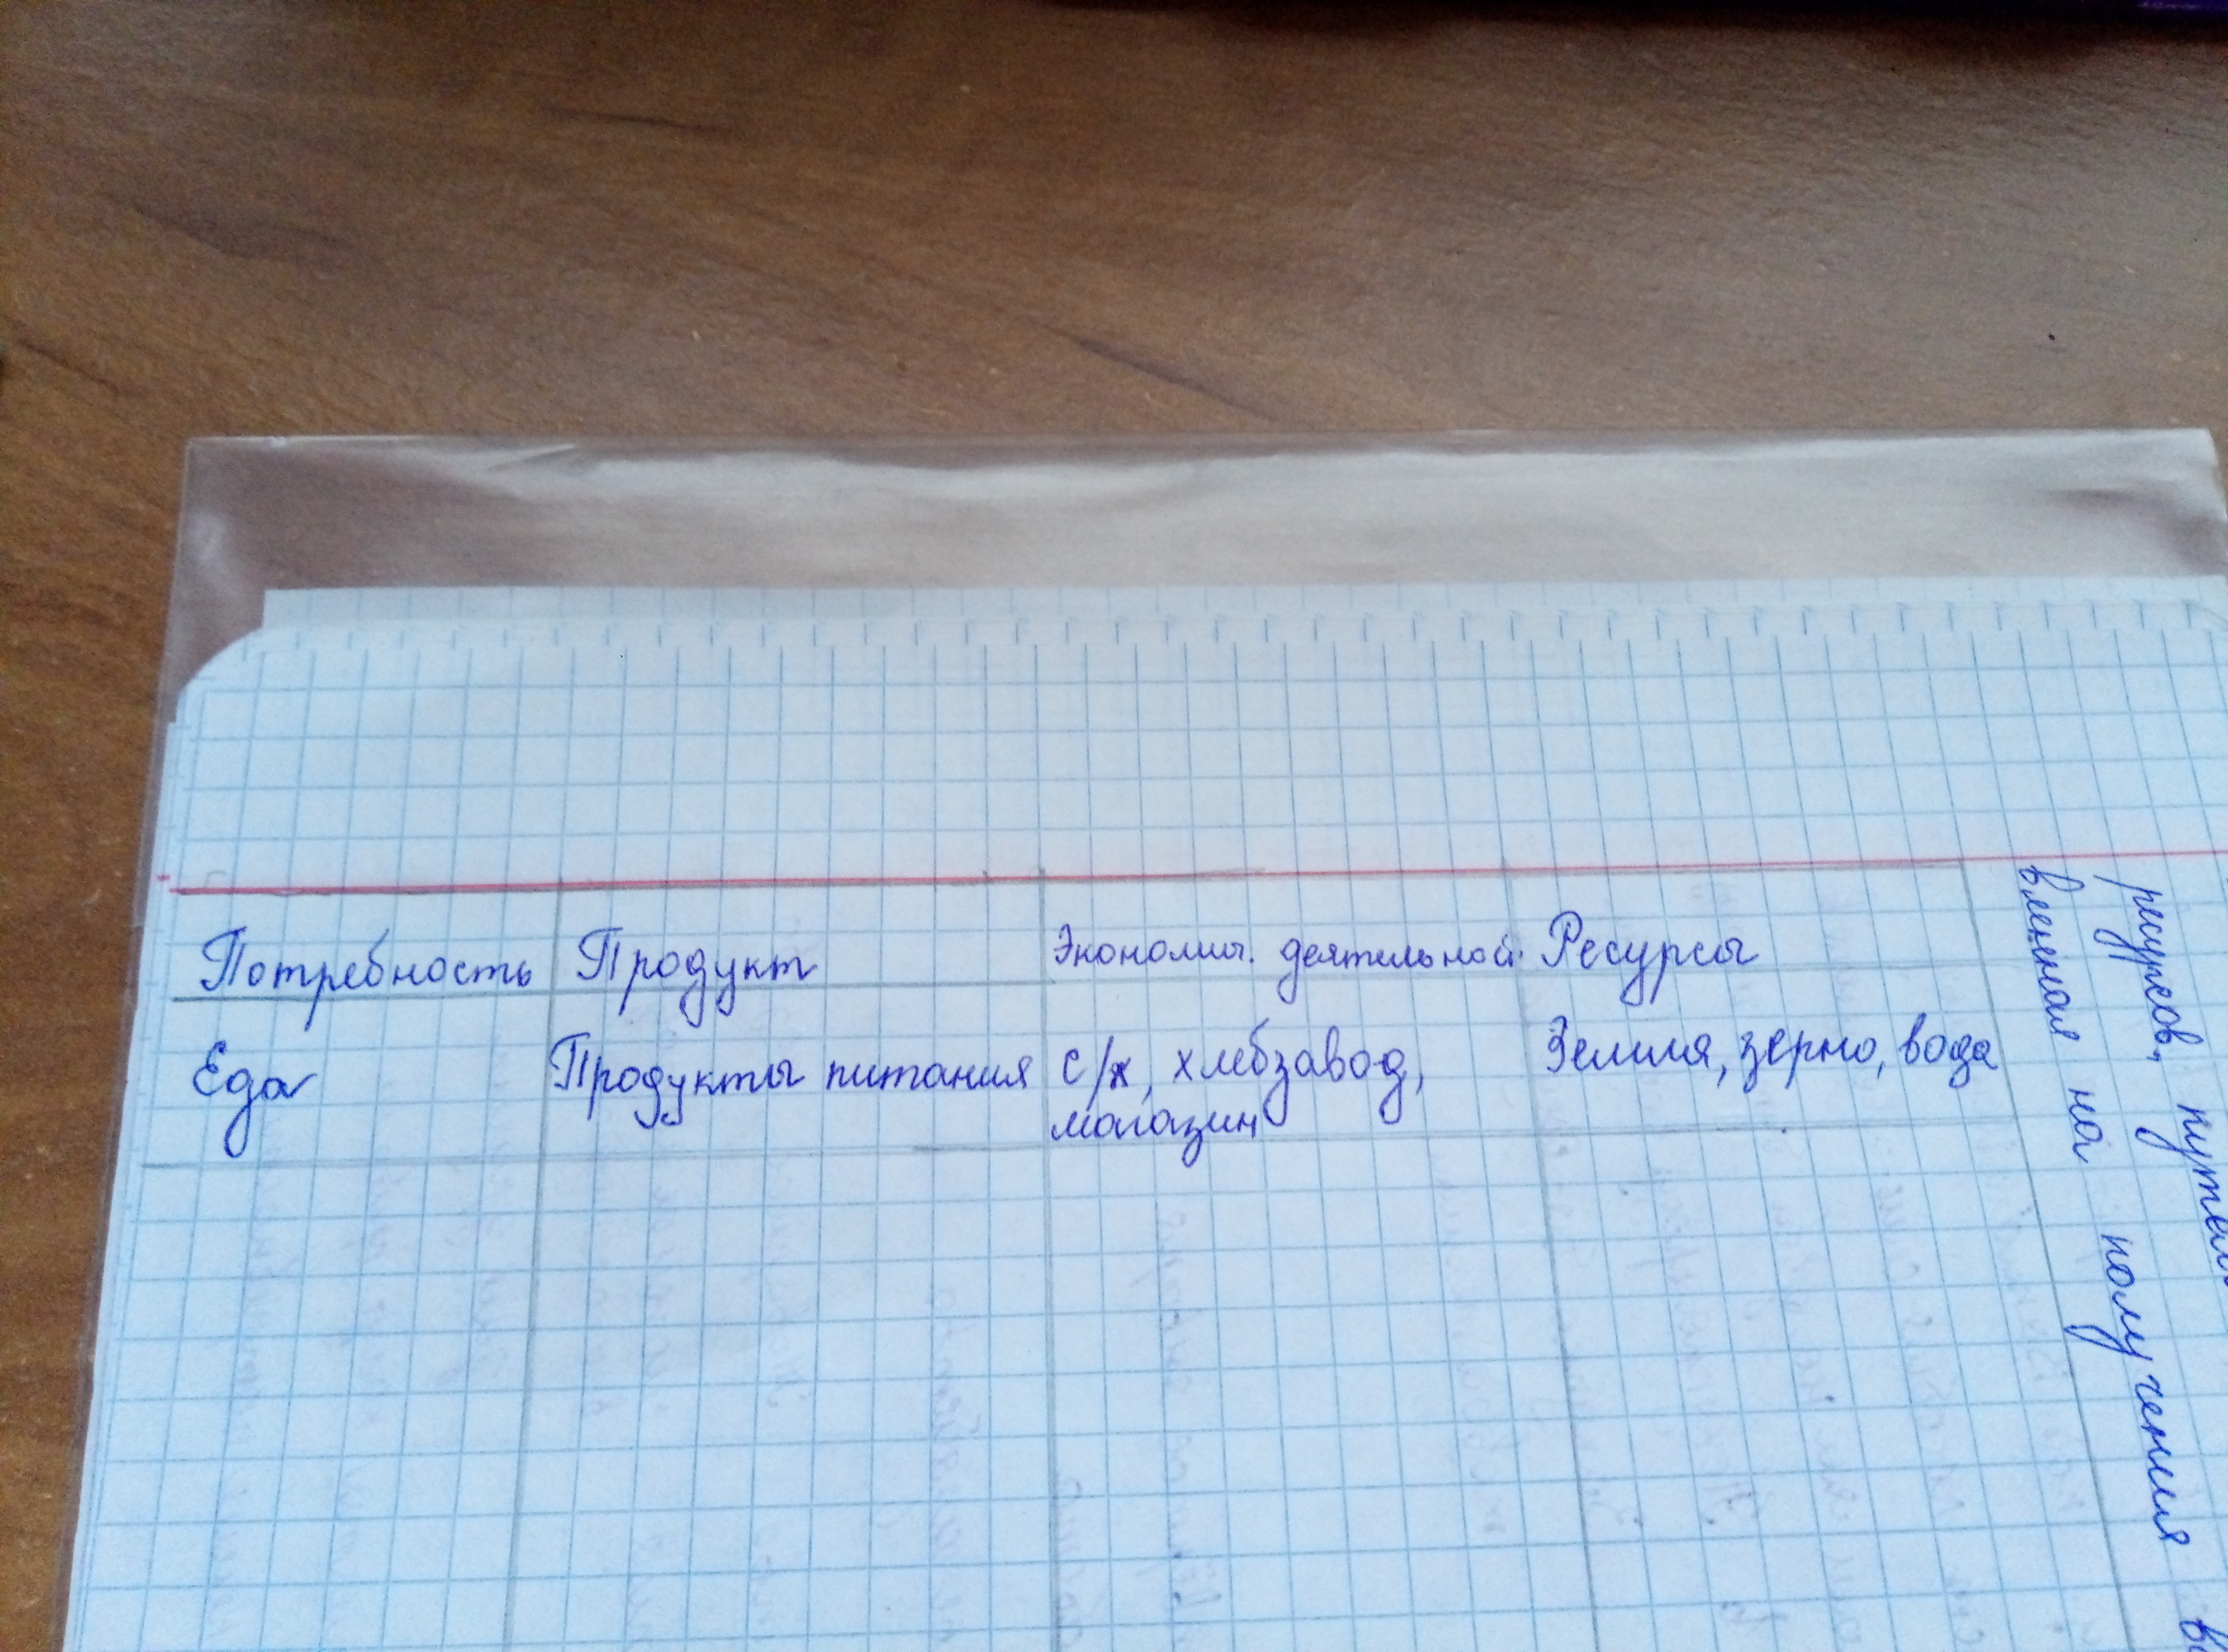 Потребность Продукт Экономич. деятельной. Ресурсы
Еда Продукты питания с/х, хлебзавод, Земля, зерно, вода
магазин
ресурсов, путем
вленная на получения